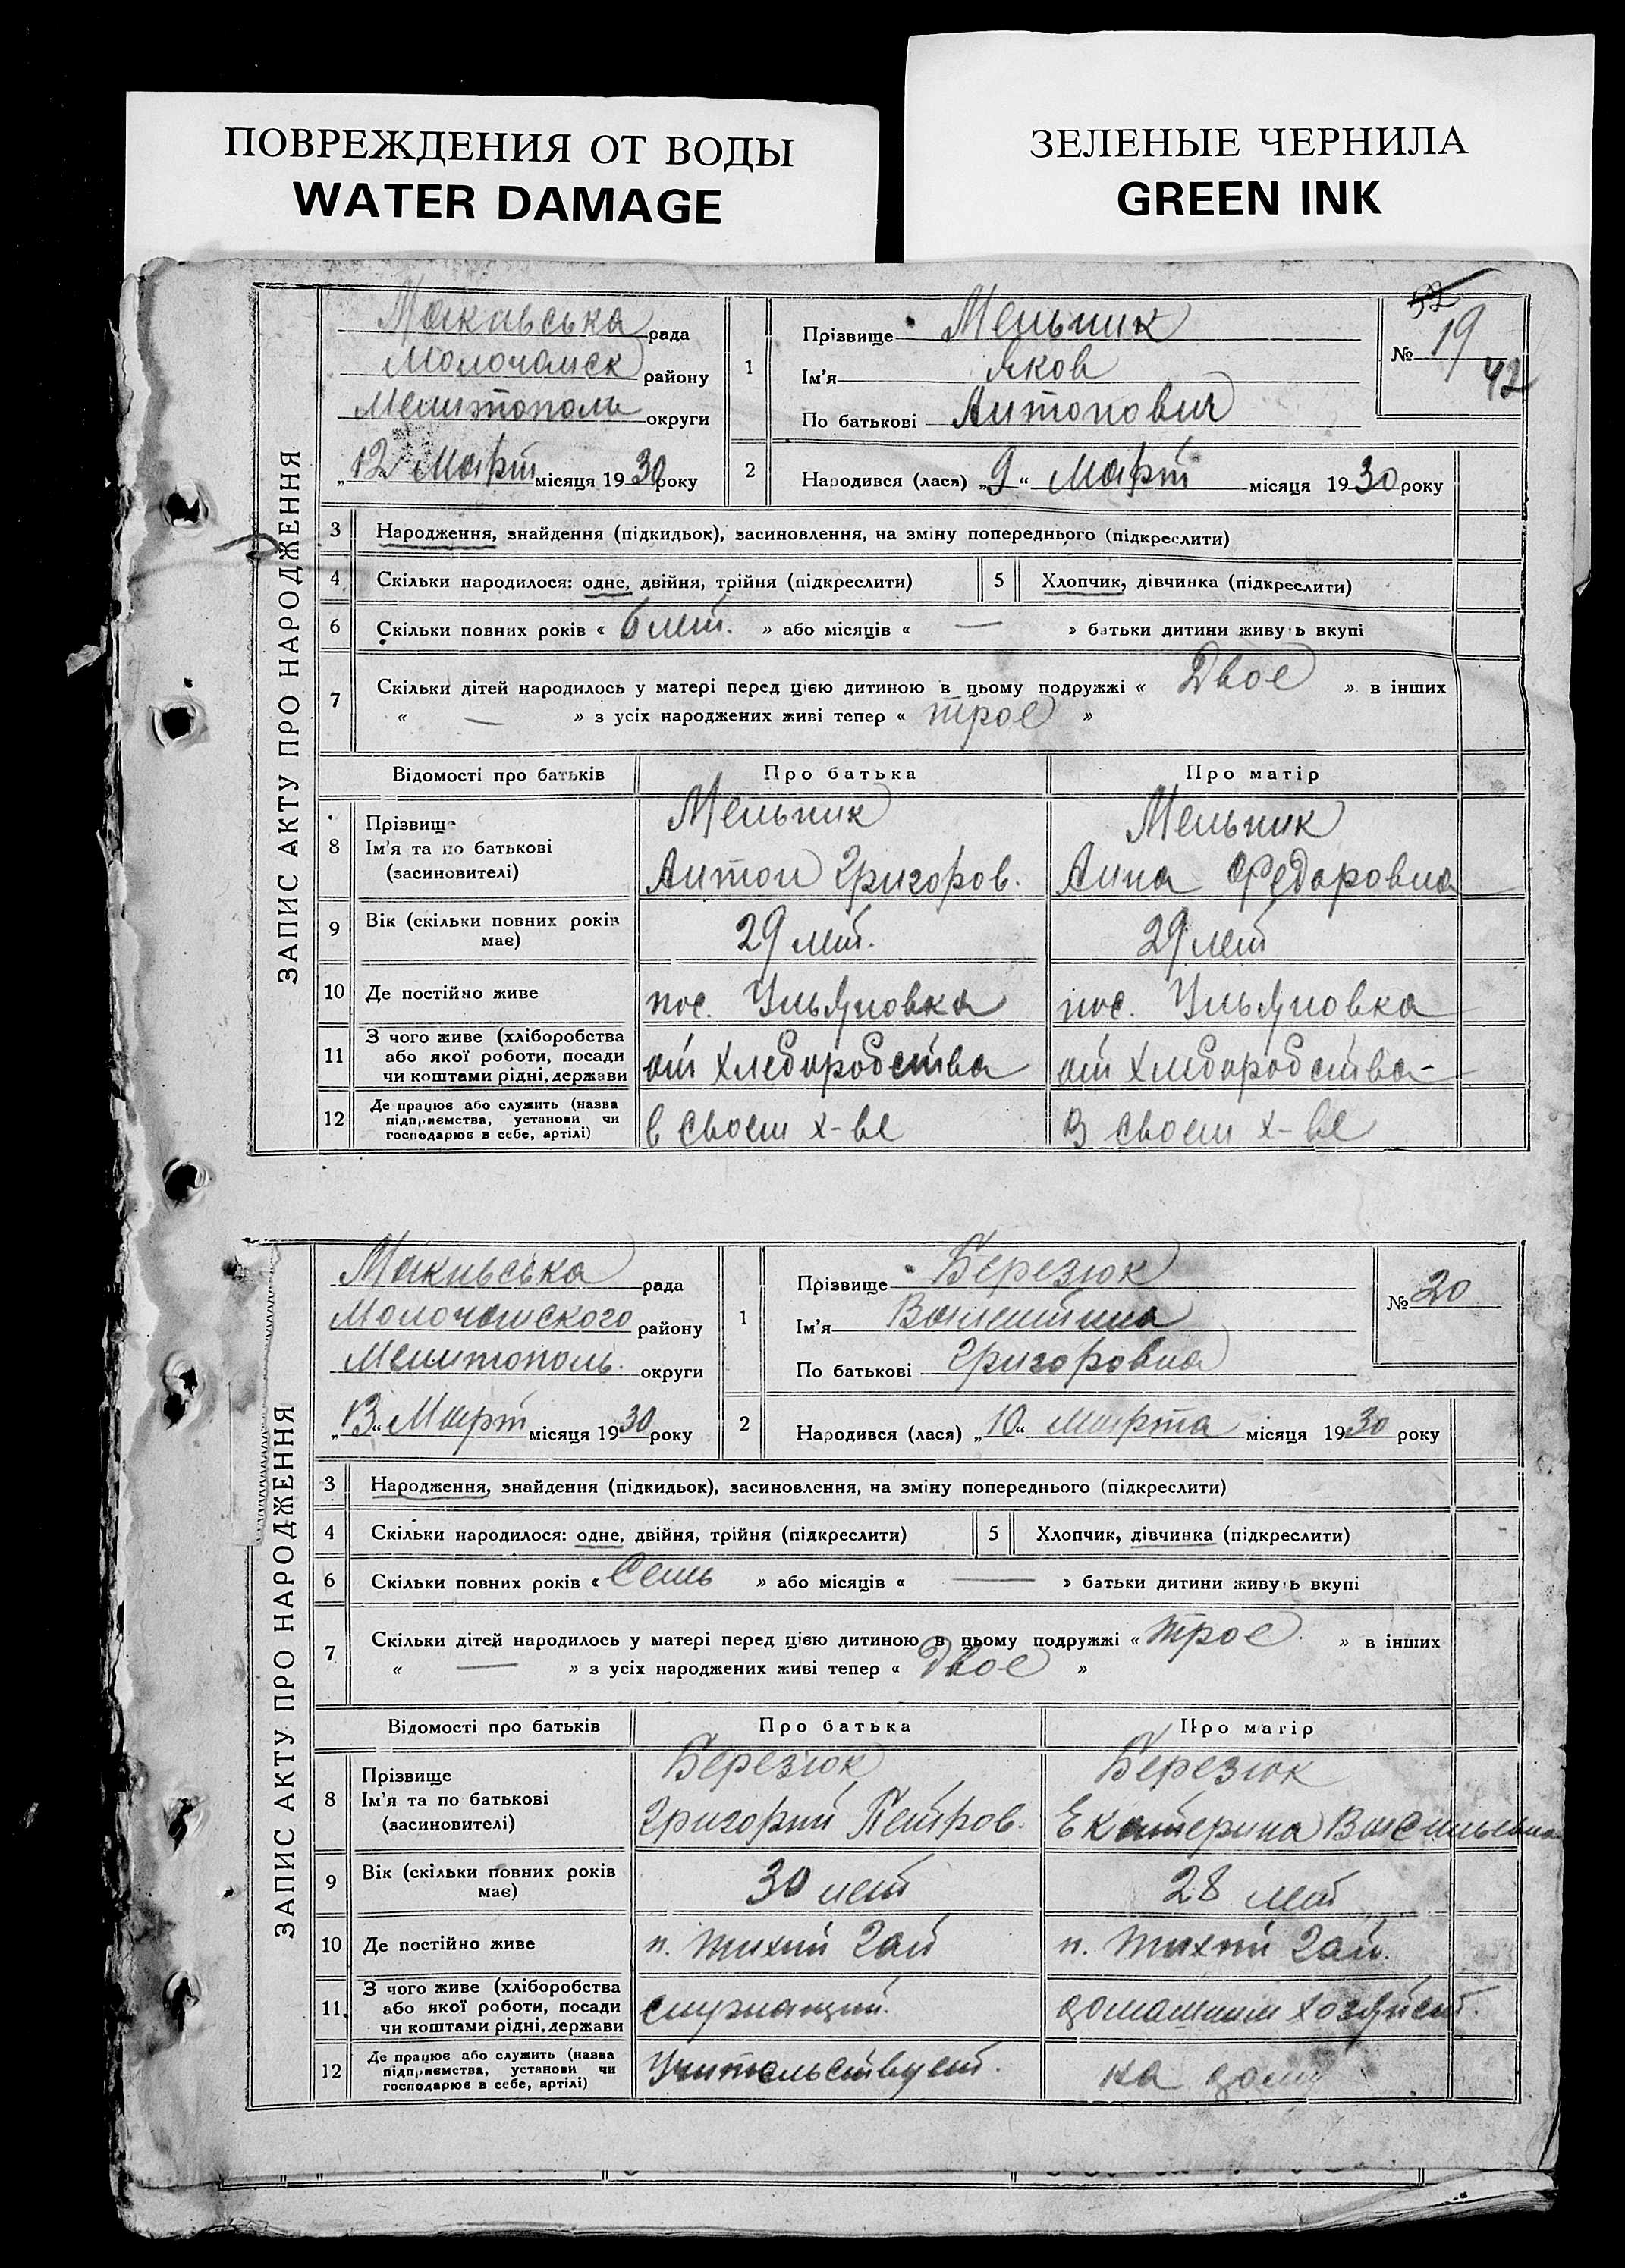 ПОВРЕЖДЕНИЯ ОТ ВОДЫ
WATER DAMAGE
ЗЕЛЕНЫЕ ЧЕРНИЛА
GREEN INK
ЗАПИС АКТУ ПРО НАРОДЖЕННЯ
рада
Молочанск району
Мелитополь округи
„12 Март місяця 1930 року
1 Прізвище Мельник
Ім'я Яков
По батькові Антонович
№ 19
42
2 Народився (лася) „9“ Март місяця 1930 року
3 Народження, знайдення (підкидьок), засиновлення, на зміну попереднього (підкреслити)
4 Скільки народилося: одне, двійня, трійня (підкреслити) 5 Хлопчик, дівчинка (підкреслити)
6 Скільки повних років « 6 лет. » або місяців « — » батьки дитини живуть вкупі
7 Скільки дітей народилось у матері перед цією дитиною в цьому подружжі « Двое » в інших
« — » з усіх народжених живі тепер « трое »
Відомості про батьків Про батька Про матір
8 Прізвище Ім'я та по батькові (засиновителі)
Мельник Мельник
Антон Григоров. Анна Федоровна
9 Вік (скільки повних років має) 29 лет. 29 лет
10 Де постійно живе пос. Ульяновка пос. Ульяновка
11 З чого живе (хліборобства або якої роботи, посади чи коштами рідні, держави от хлеборобства от хлеборобства
12 Де працює або служить (назва підприємства, установи чи господарює в себе, артілі) в своем х-ве в своем х-ве
ЗАПИС АКТУ ПРО НАРОДЖЕННЯ
рада
Молочанского району
Мелитополь. округи
„13“ Март місяця 1930 року
1 Прізвище Березюк
Ім'я Валентина
По батькові Григоровна
№ 20
2 Народився (лася) „10“ Марта місяця 1930 року
3 Народження, знайдення (підкидьок), засиновлення, на зміну попереднього (підкреслити)
4 Скільки народилося: одне, двійня, трійня (підкреслити) 5 Хлопчик, дівчинка (підкреслити)
6 Скільки повних років « Семь » або місяців « — » батьки дитини живуть вкупі
7 Скільки дітей народилось у матері перед цією дитиною в цьому подружжі « трое » в інших
« — » з усіх народжених живі тепер « Двое »
Відомості про батьків Про батька Про матір
8 Прізвище Ім'я та по батькові (засиновителі)
Березюк Березюк
Григорий Петров. Екатерина Васильевна
9 Вік (скільки повних років має) 30 лет 28 лет
10 Де постійно живе п. Тихий Гай п. Тихий Гай.
11. З чого живе (хліборобства або якої роботи, посади чи коштами рідні, держави служащий. домашним хозяйст.
12 Де працює або служить (назва підприємства, установи чи господарює в себе, артілі) Учительствует. на дому